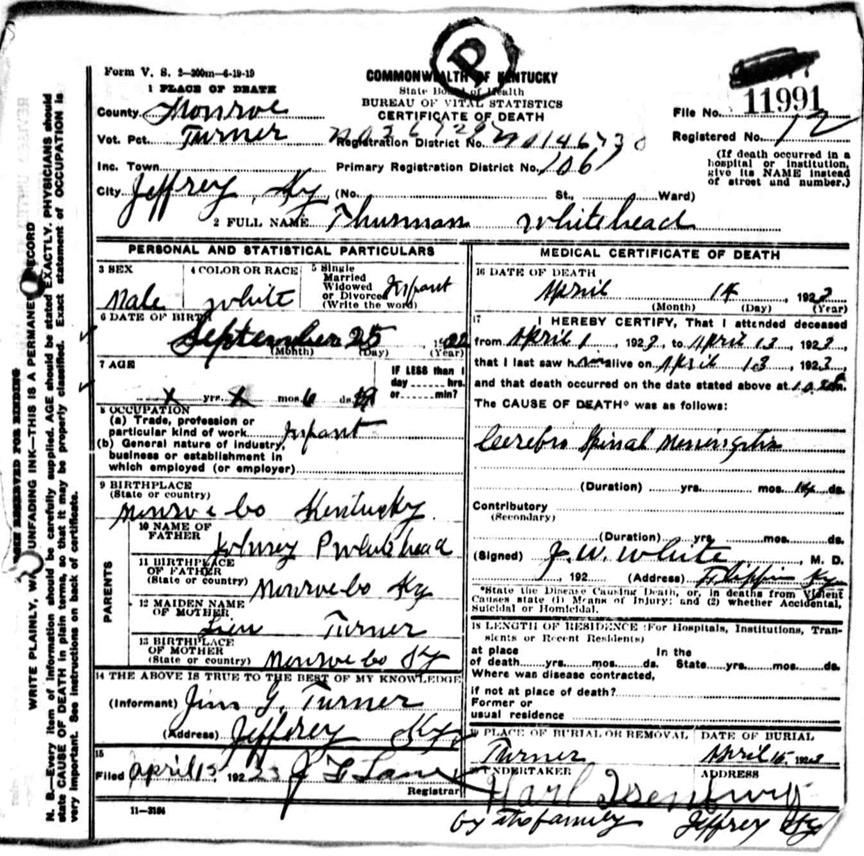 P
Form V. S. 2-300m-6-19-19
COMMONWEALTH OF KENTUCKY
State Board of Health
BUREAU OF VITAL STATISTICS
CERTIFICATE OF DEATH
11991
1 PLACE OF DEATH
County Monroe
File No.
Vot. Pct. Turner
Registration District No.
Registered No. 12
Inc. Town
Primary Registration District No. 1061
(If death occurred in a hospital or institution, give its NAME instead of street and number.)
City Jeffrey, Ky (No. St., Ward)
2 FULL NAME Thurman Whitehead
PERSONAL AND STATISTICAL PARTICULARS
3 SEX
Male
4 COLOR OR RACE
White
5 Single
Married
Widowed
or Divorced
(Write the word)
Infant
6 DATE OF BIRTH
September 25
(Month) (Day) (Year)
7 AGE
x yrs. x mos. 6 ds.
IF LESS than 1
day hrs.
or min?
8 OCCUPATION
(a) Trade, profession or
particular kind of work Infant
(b) General nature of industry,
business or establishment in
which employed (or employer)
9 BIRTHPLACE
(State or country)
Monroe Co Kentucky
10 NAME OF
FATHER
Johney P Whitehead
PARENTS
11 BIRTHPLACE
OF FATHER
(State or country)
Monroe Co Ky
12 MAIDEN NAME
OF MOTHER
Turner
13 BIRTHPLACE
OF MOTHER
(State or country)
Monroe Co Ky
14 THE ABOVE IS TRUE TO THE BEST OF MY KNOWLEDGE
(Informant) Jim G. Turner
(Address) Jeffrey Ky
15
Filed April 192 23 Registrar
11-3184
MEDICAL CERTIFICATE OF DEATH
16 DATE OF DEATH
April 14, 1923
(Month) (Day) (Year)
17
I HEREBY CERTIFY, That I attended deceased
from April 1 1923, to April 13 1923,
that I last saw him alive on April 13 1923,
and that death occurred on the date stated above at
The CAUSE OF DEATH* was as follows:
Cerebro Spinal Meningitis
(Duration) yrs. mos. 14 ds.
Contributory
(Secondary)
(Duration) yrs. mos. ds.
(Signed) J. W. White, M. D.
, 192 (Address) Flippin Ky
*State the Disease Causing Death, or, in deaths from Violent
Causes state (1) Means of Injury; and (2) whether Accidental,
Suicidal or Homicidal.
18 LENGTH OF RESIDENCE (For Hospitals, Institutions, Tran-
sients or Recent Residents)
at place
of death yrs. mos. ds.
In the
State yrs. mos. ds.
Where was disease contracted,
if not at place of death?
Former or
usual residence
PLACE OF BURIAL OR REMOVAL
Turner
DATE OF BURIAL
April 15, 1923
UNDERTAKER
ADDRESS
by the family Jeffrey Ky
WRITE PLAINLY, UNFADING INK—THIS IS A PERMANENT RECORD
N. B.—Every item of information should be carefully supplied. AGE should be stated EXACTLY. PHYSICIANS should
state CAUSE OF DEATH in plain terms, so that it may be properly classified. Exact statement of OCCUPATION is
very important. See instructions on back of certificate.